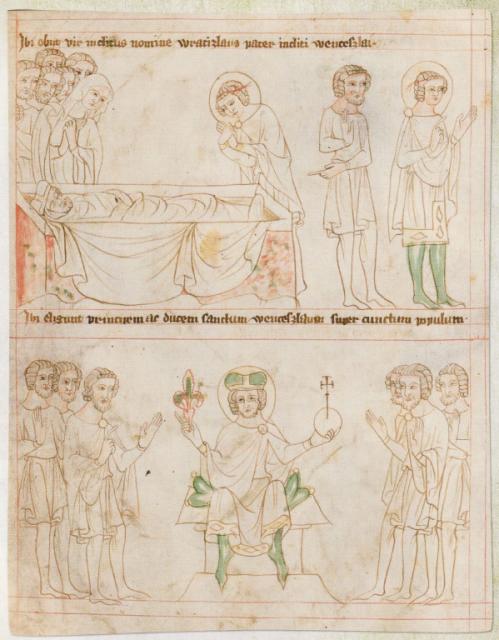 Ibi obiit vir inclitus nomine wratizlaus pater incliti wenceslai.
Ibi eligunt principem ac ducem sanctum wenceslaum super cunctum populum.